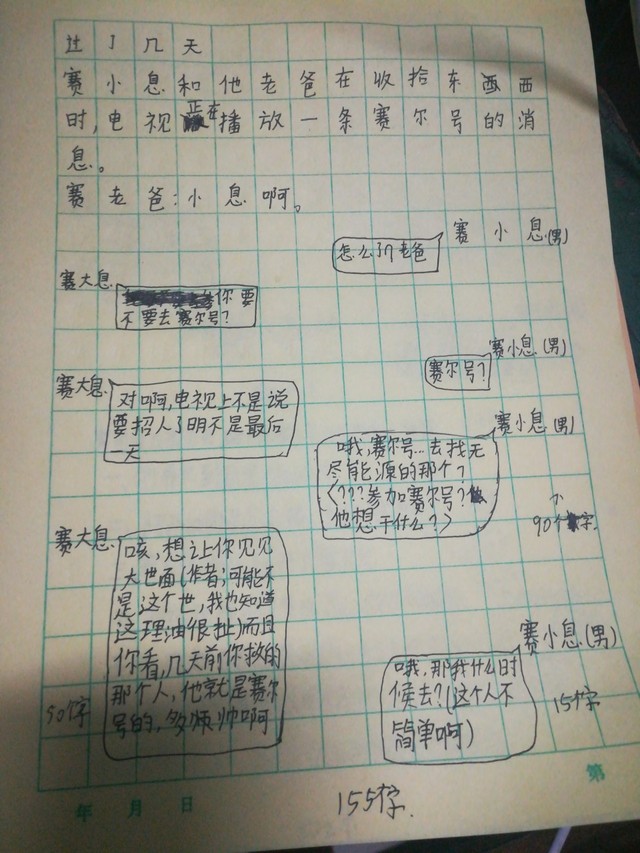 过了几天
赛小息和他老爸在收拾东西西
时,电视正在播放一条赛尔号的消
息。
赛老爸:小息啊。
赛小息(男)
怎么了老爸
赛大息
你要
不要去赛尔号?
赛小息(男)
赛尔号?
赛大息
对啊,电视上不是说
要招人了明不是最后
一天
赛小息(男)
哦,赛尔号…去找无
尽能源的那个?
(???参加赛尔号?
他想干什么?)
个
90个字
赛大息
咳,想让你见见
大世面(作者;可能不
是这个世,我也知道
这理油很扯)而且
你看,几天前你救的
那个人,他就是赛尔
号的,多师帅啊
50个字
赛小息(男)
哦,那我什么时
候去?(这个人不
简单啊)
15个字
第
年 月 日
155个字.